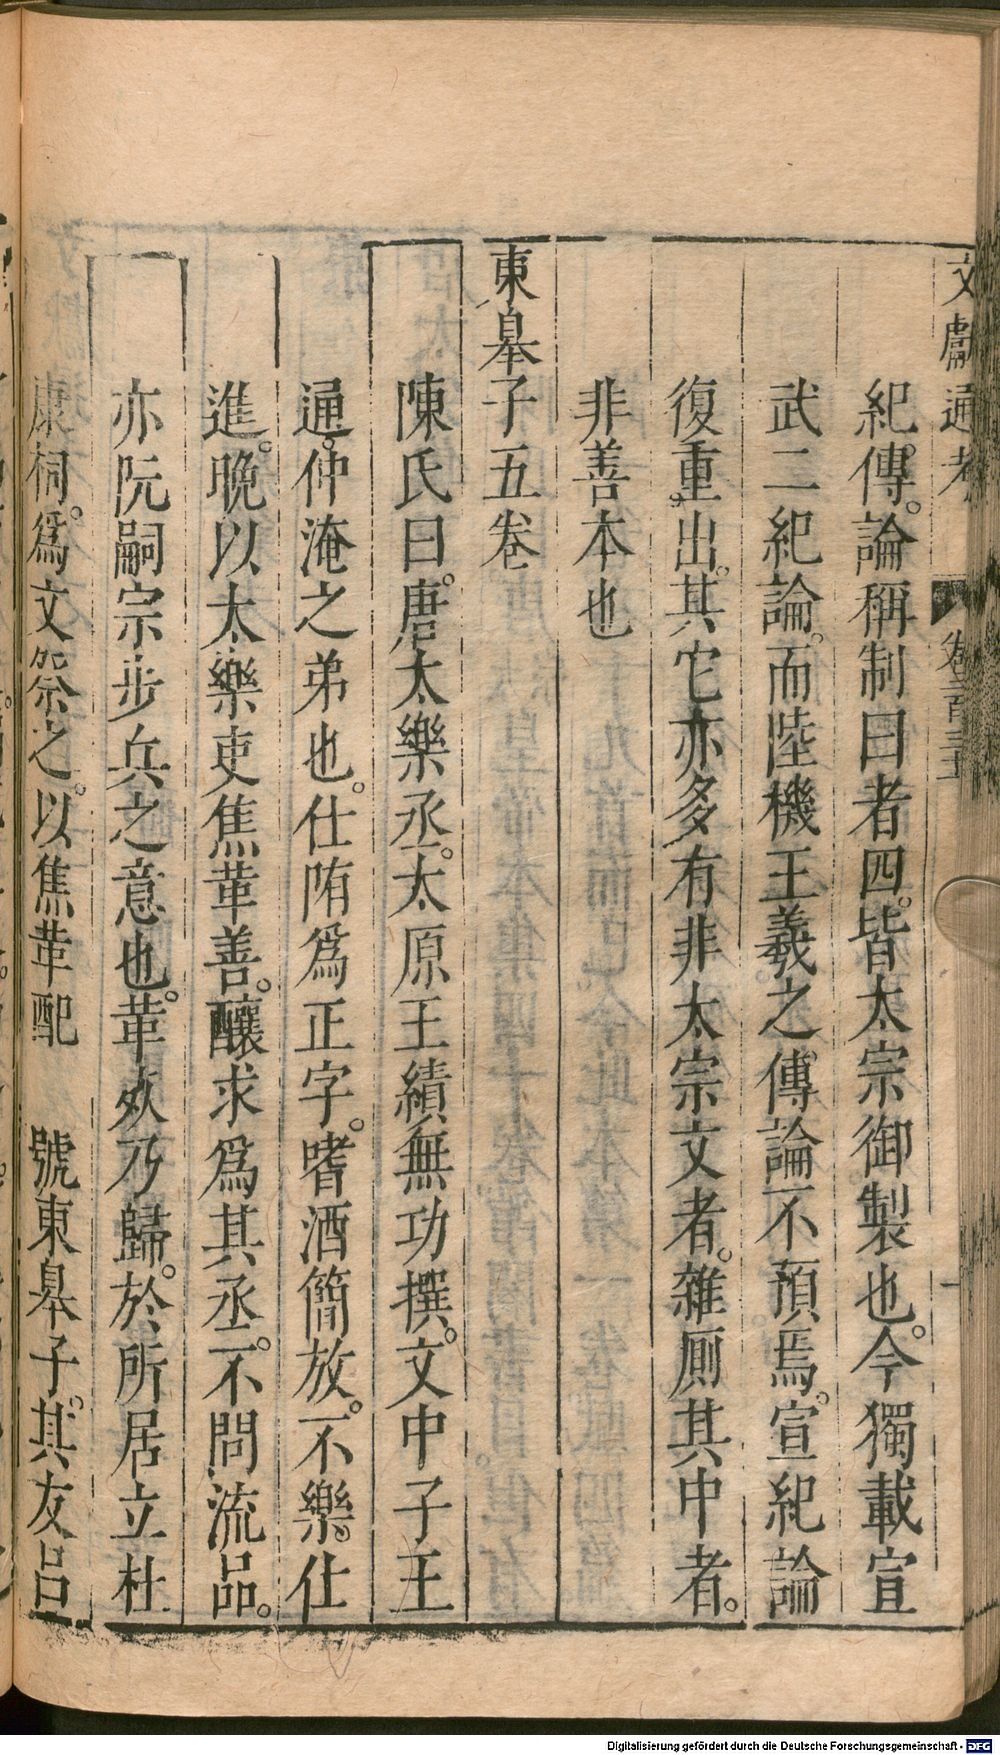 文獻通考 卷二百三十一
紀傳。論稱制曰者四。皆太宗御製也。今獨載宣
武二紀論。而陸機王羲之傳論不預焉。宣紀論
復重出。其它亦多有非太宗文者。雜厠其中者。
非善本也
東皐子五卷
陳氏曰。唐太樂丞。太原王績無功撰。文中子王
通。仲淹之弟也。仕隋爲正字。嗜酒簡放。不樂。仕
進。晩以太樂吏焦革善。釀求爲其丞。不問流品。
亦阮嗣宗步兵之意也。革死乃歸。於所居立杜
康祠。爲文祭之。以焦革配 號東皐子。其友呂
Digitalisierung gefördert durch die Deutsche Forschungsgemeinschaft - DFG